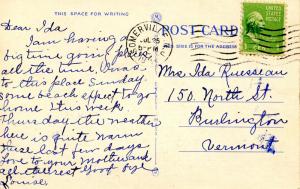 THIS SPACE FOR WRITING
Dear Ida
I am having a
big time going places
all the time. Was
to this place Sunday.
beach expect to go
home this week
Thursday the weather
here is quite warm
these last few days
Love to your Mother and
all the rest Good bye
Louise.
SOMERVILLE
POST CARD
THIS SIDE IS FOR THE ADDRESS
Mrs. Ida Rousseau
150. North St.
Burlington
Vermont